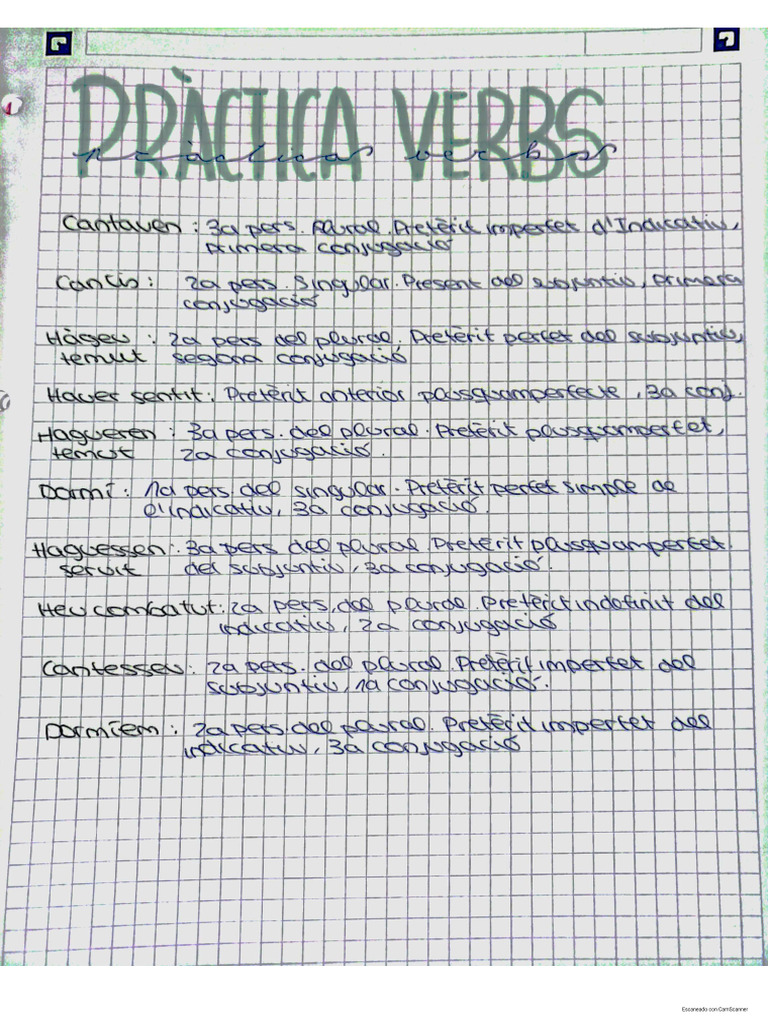 PRÀCTICA VERBS
pràctica verbs
Cantaven : 3a pers. Plural. Pretèrit imperfet d'Indicatiu,
primera conjugació
Cantis : 2a pers. Singular. Present del subjuntiu, primera
conjugació
Hàgeu : 2a pers del plural, Pretèrit perfet del subjuntiu,
temut segona conjugació
Haver sentit : Pretèrit anterior plusquamperfecte, 3a conj.
Hagueren : 3a pers. del plural. Pretèrit plusquamperfet,
temut 2a conjugació.
Dormí : 1a pers del singular. Pretèrit perfet simple de
l'indicatiu, 3a conjugació.
Haguessen : 3a pers del plural. Pretèrit plusquamperfet.
servit del subjuntiu, 3a conjugació.
Heu combatut : 2a pers. del plural. Pretèrit indefinit del
indicatiu, 2a conjugació
Cantesseu : 2a pers. del plural. Pretèrit imperfet del
subjuntiu, 1a conjugació.
Dormíem : 2a pers. del plural. Pretèrit imperfet del
indicatiu, 3a conjugació
Escaneado con CamScanner